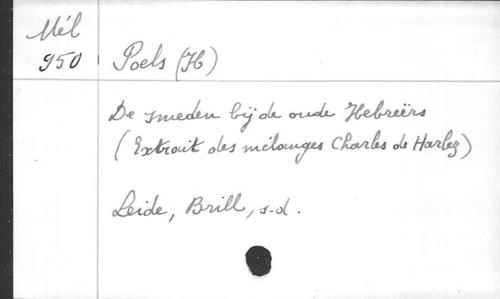 Mél
950
Poels (H)
De smeden bij de oude Hebreërs
(Extrait des mélanges Charles de Harlez)
Leide, Brill, s.d.